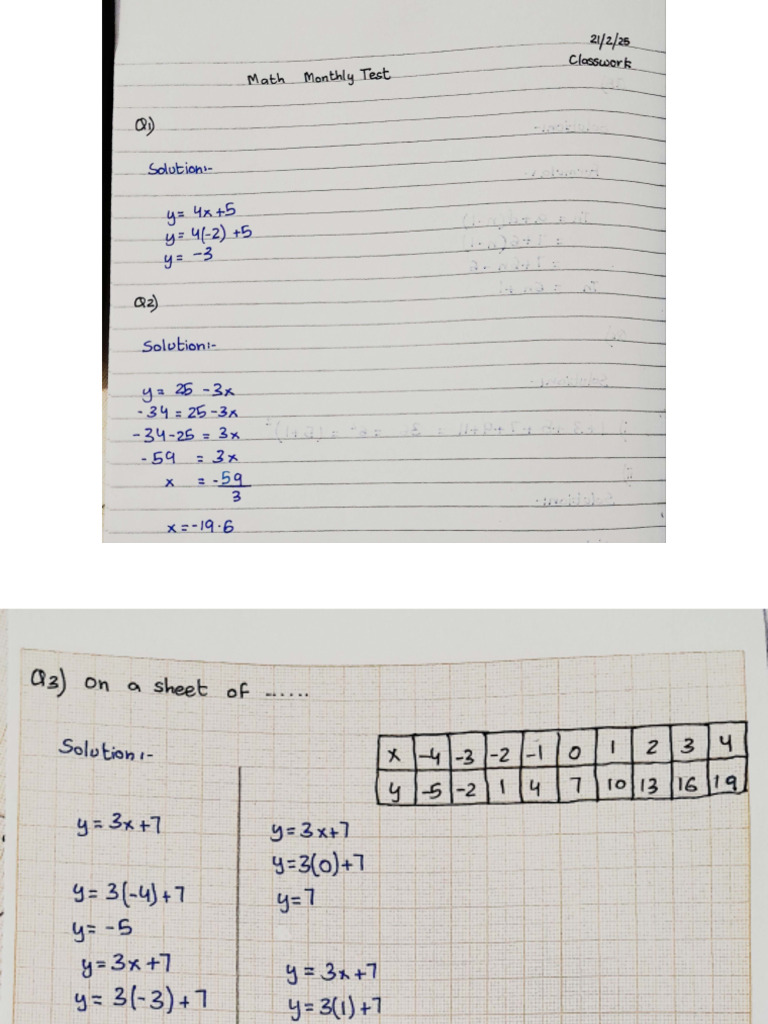 21/2/25
Classwork
Math Monthly Test
Q1)
Solution:-
y= 4x+5
y= 4(-2) +5
y= -3
Q2)
Solution:-
y= 25 -3x
-34 = 25-3x
-34-25 = 3x
-59 = 3x
x = -59
3
x=-19.6
Q3) on a sheet of ......
Solution:-
x -4 -3 -2 -1 0 1 2 3 4
y -5 -2 1 4 7 10 13 16 19
y=3x+7
y= 3(-4)+7
y= -5
y=3x+7
y= 3(-3)+7
y=3x+7
y=3(0)+7
y=7
y=3x+7
y=3(1)+7